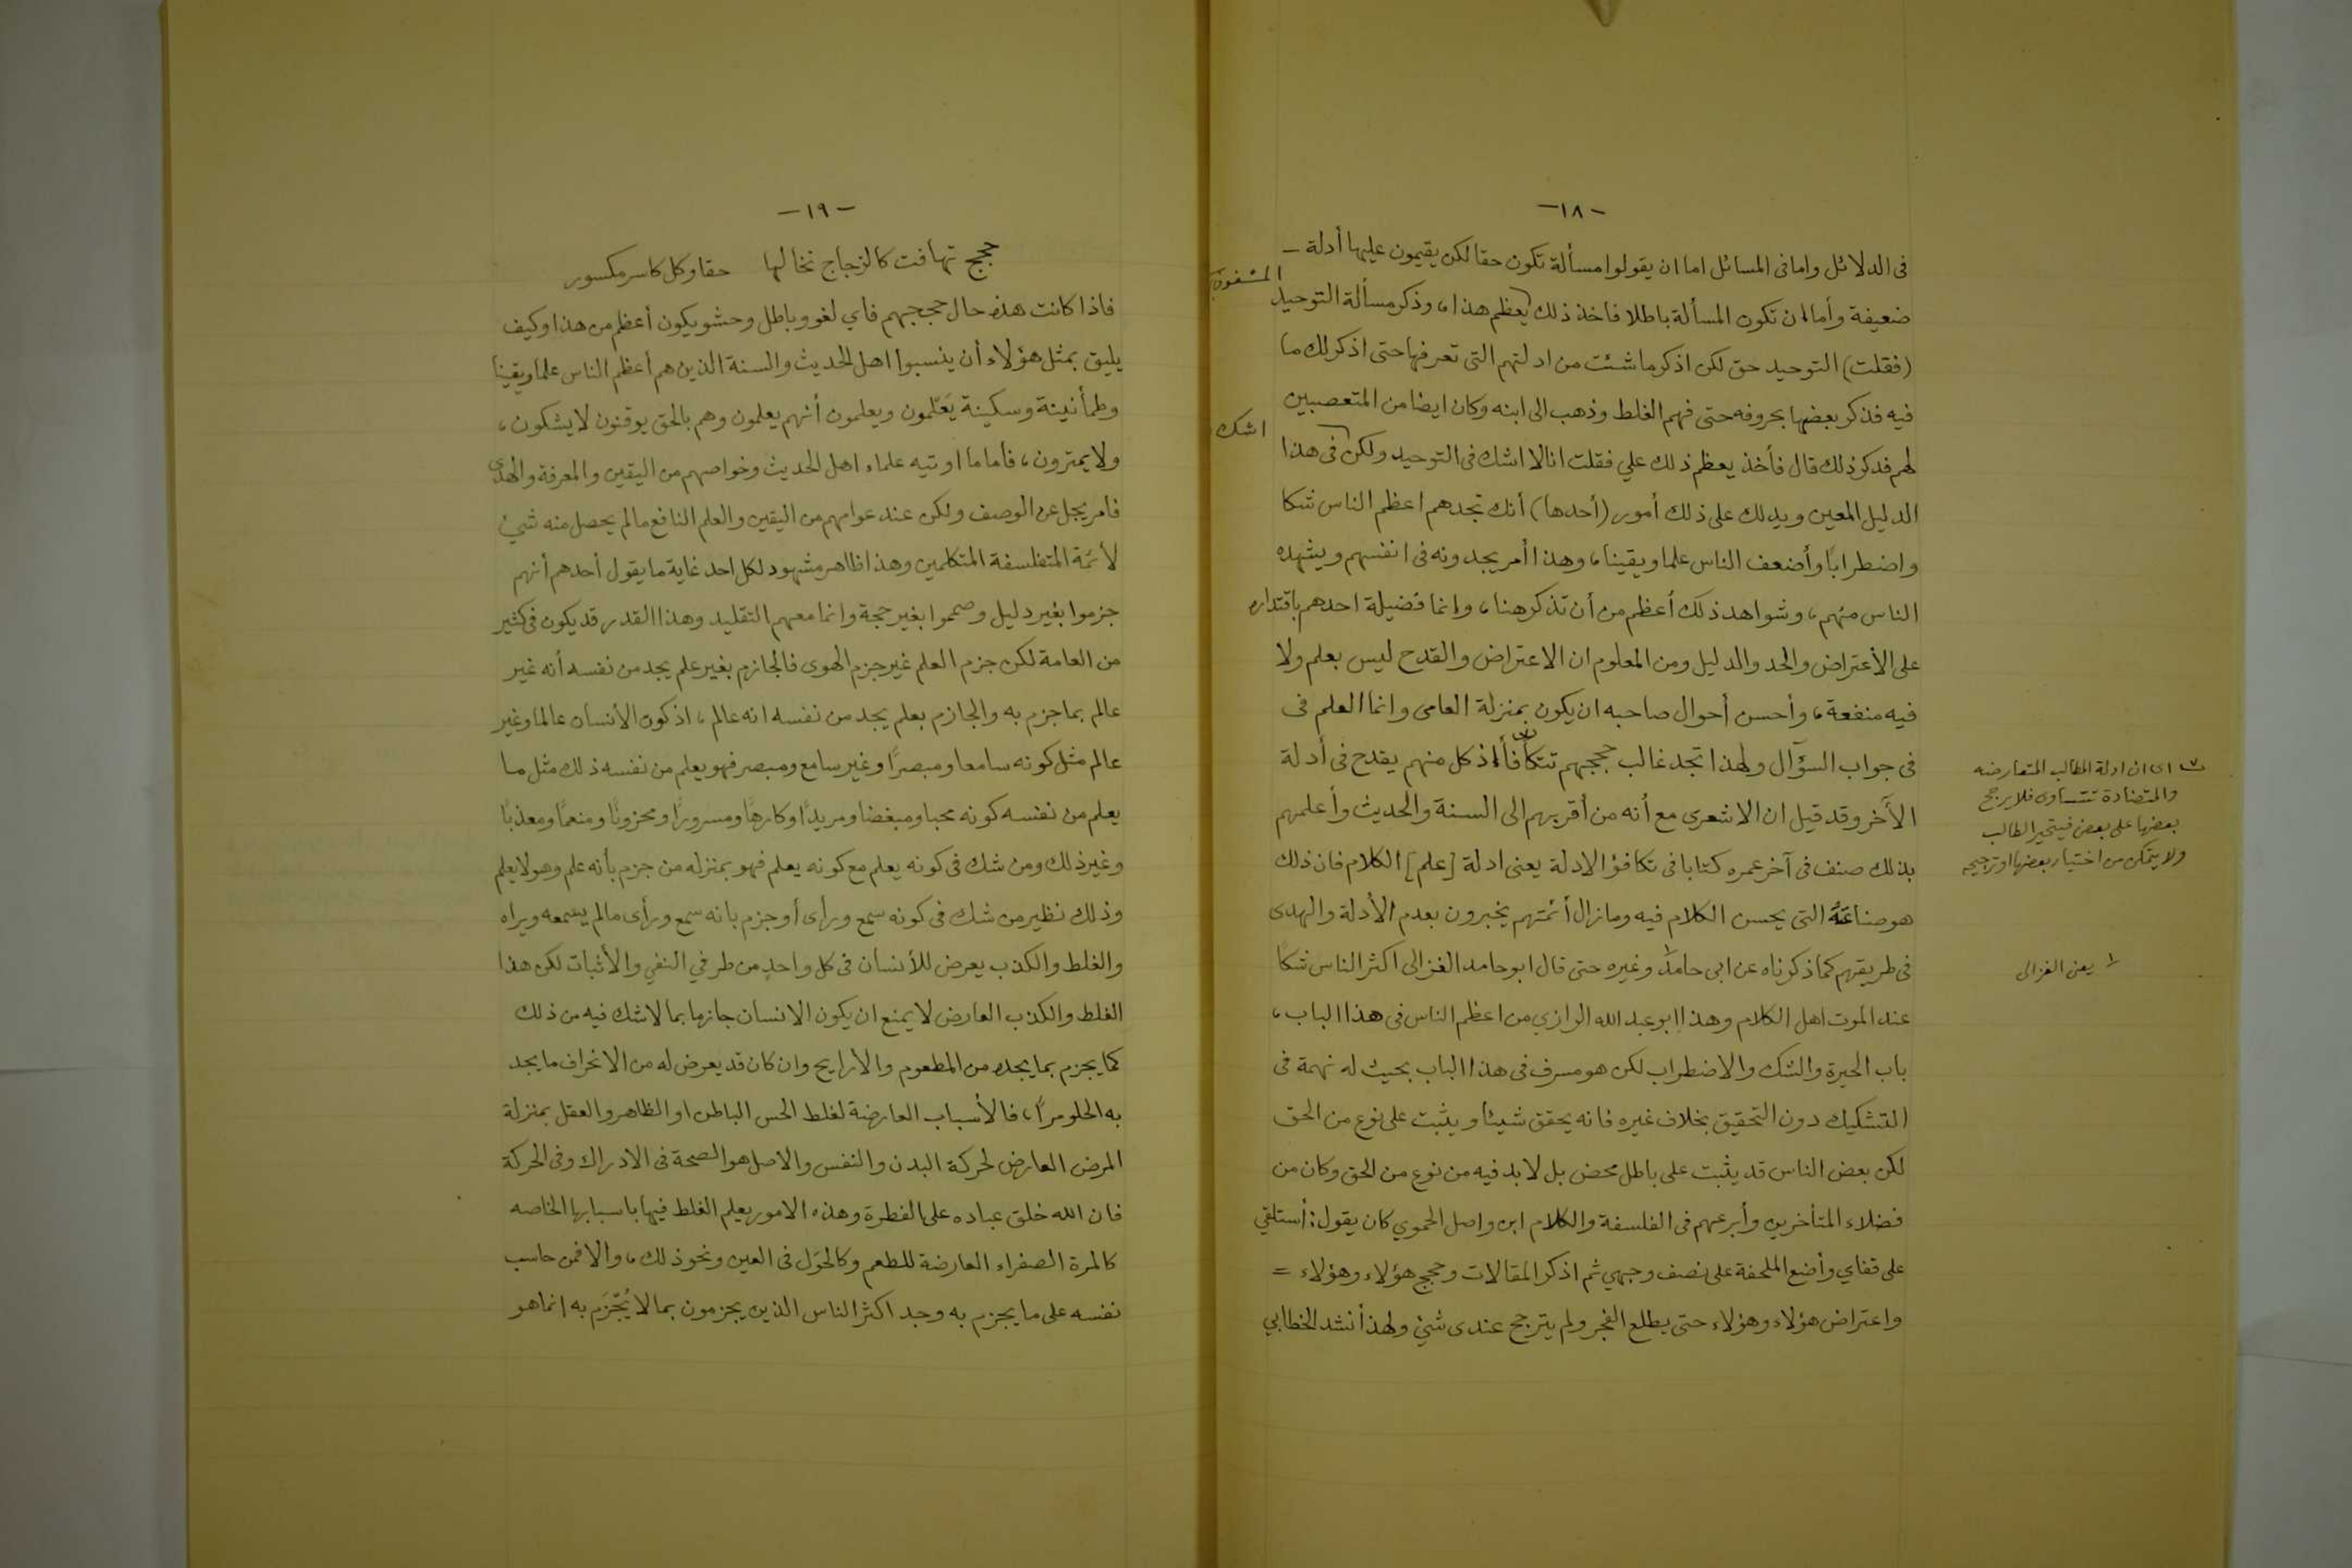 -١٨-
فى الدلائل واما فى المسائل اما ان يقولوا مسألة تكون حقا لكن يقيمون عليها أدلة -
ضعيفة وأما ان تكون المسألة باطلا فاخذ ذلك يعظم هذا، وذكر مسألة التوحيد
(فقلت) التوحيد حق لكن اذكر ما شئت من ادلتهم التى تعرفها حتى اذكر لك ما
فيه فذكر بعضها بحروفه حتى فهم الغلط وذهب الى ابنه وكان ايضا من المتعصبين
لهم فذكر ذلك قال فأخذ يعظم ذلك علي فقلت انا لا اشك فى التوحيد ولكن فى هذا
اشك
الدليل المعين ويدلك على ذلك أمور (أحدها) أنك تجدهم اعظم الناس شكا
واضطرابًا وأضعف الناس علما ويقينا، وهذا أمر يجدونه فى انفسهم ويشهده
الناس منهم، وشواهد ذلك أعظم من أن تذكر هنا، وانما فضيلة احدهم باقتداره
على الأعتراض والحد والدليل ومن المعلوم ان الاعتراض والقدح ليس بعلم ولا
فيه منفعة، وأحسن أحوال صاحبه ان يكون بمنزلة العامى وانما العلم فى
فى جواب السؤال ولهذا تجد غالب حججهم تتكافأ اذ كل منهم يقدح فى أدلة
الآخر وقد قيل ان الاشعرى مع أنه من أقربهم الى السنة والحديث وأعلمهم
بذلك صنف فى آخر عمره كتابا فى تكافؤ الادلة يعنى ادلة [علم] الكلام فان ذلك
هو صناعَتَهُ التى يحسن الكلام فيه وما زال أئمتهم يخبرون بعدم الأدلة والهدى
فى طريقهم كما ذكرناه عن ابى حامد وغيره حتى قال ابو حامد الغزالى اكثر الناس شكًا
عند الموت اهل الكلام وهذا ابو عبد الله الرازي من اعظم الناس فى هذا الباب،
باب الحيرة والشك والاضطراب لكن هو مسرف فى هذا الباب بحيث له نهمة فى
التشكيك دون التحقيق بخلاف غيره فانه يحقق شيئا ويثبت على نوع من الحق
لكن بعض الناس قد يثبت على باطل محض بل لا بد فيه من نوع من الحق وكان من
فضلاء المتأخرين وأبرعهم فى الفلسفة والكلام ابن واصل الحموي كان يقول: أستلقي
على قفاي وأضع الملحفة على نصف وجهي ثم اذكر المقالات وحجج هؤلاء وهؤلاء =
واعتراض هؤلاء وهؤلاء حتى يطلع الفجر ولم يترجح عندى شئ ولهذا أنشد الخطابي
اى ان ادلة المطالب المتعارضه
والمتضادة تتساوى فلا يرجح
بعضها على بعض فيتحير الطالب
ولا يتمكن من اختيار بعضها او ترجيحه
١ يعنى الغزالى
-١٩-
حجج تهافت كالزجاج تخالها حقا وكل كاسر مكسور
فاذا كانت هذه حال حججهم فاي لغو وباطل وحشو يكون أعظم من هذا وكيف
يليق بمثل هؤلاء أن ينسبوا اهل الحديث والسنة الذين هم أعظم الناس علما ويقينا
وطمأنينة وسكينة يَعَلّمون ويعلمون أنهم يعلمون وهم بالحق يوقنون لا يشكون،
ولا يمترون، فأما ما اوتيه علماء اهل الحديث وخواصهم من اليقين والمعرفة والهدى
فامر يجل عن الوصف ولكن عند عوامهم من اليقين والعلم النافع ما لم يحصل منه شئ
لأئمة المتفلسفة المتكلمين وهذا ظاهر مشهود لكل احد غاية ما يقول أحدهم أنهم
جزموا بغير دليل وصمموا بغير حجة وانما معهم التقليد وهذا القدر قد يكون فى كثير
من العامة لكن جزم العلم غير جزم الهوى فالجازم بغير علم يجد من نفسه أنه غير
عالم بما جزم به والجازم بعلم يجد من نفسه انه عالم، اذ كون الأنسان عالما وغير
عالم مثل كونه سامعا ومبصرًا وغير سامع ومبصر فهو يعلم من نفسه ذلك مثل ما
يعلم من نفسه كونه محبا ومبغضا ومريدًا وكارهًا ومسرورًا ومحزونًا ومنعمًا ومعذبًا
وغير ذلك ومن شك فى كونه يعلم مع كونه يعلم فهو بمنزله من جزم بأنه علم وهو لا يعلم
وذلك نظير من شك فى كونه سمع ورأى أو جزم بانه سمع ورأى ما لم يسمعه ويراه
والغلط والكذب يعرض للأنسان فى كل واحدٍ من طرفي النفي والأثبات لكن هذا
الغلط والكذب العارض لا يمنع ان يكون الانسان جازما بما لا شك فيه من ذلك
كما يجزم بما يجده من المطعوم والارايح وان كان قد يعرض له من الانحراف ما يجد
به الحلو مرًا، فالأسباب العارضة لغلط الحس الباطن او الظاهر والعقل بمنزلة
المرض العارض لحركة البدن والنفس والاصل هو الصحة فى الادراك وفى الحركة
فان الله خلق عباده على الفطرة وهذه الامور يعلم الغلط فيها باسبابها الخاصه
كالمرة الصفراء العارضة للطعم وكالحَوَل فى العين ونحو ذلك، والا فمن حاسب
نفسه على ما يجزم به وجد اكثر الناس الذين يجزمون بما لا يُجْزَم به انما هو